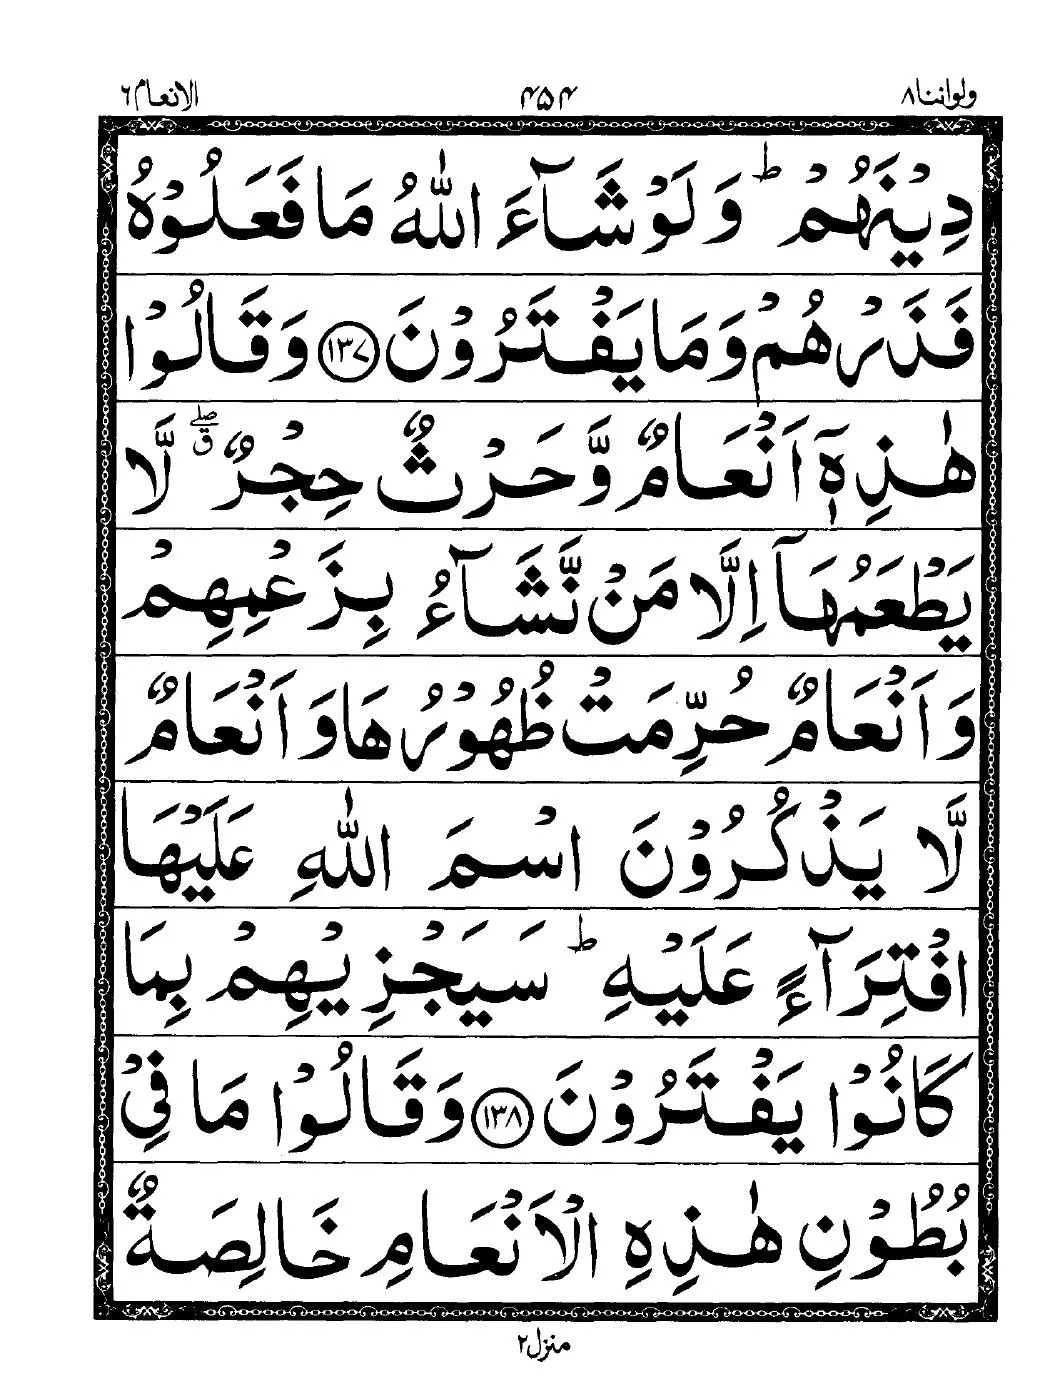 ولواننا۸ ۴۵۴ الانعام۶
دِيْنَهُمْ ؕ وَلَوْ شَآءَ اللّٰهُ مَا فَعَلُوْهُ
فَذَرْهُمْ وَمَا يَفْتَرُوْنَ ﴿۱۳۷﴾ وَقَالُوْا
هٰذِهٖۤ اَنْعَامٌ وَّحَرْثٌ حِجْرٌ ۖق لَّا
يَطْعَمُهَاۤ اِلَّا مَنْ نَّشَآءُ بِزَعْمِهِمْ
وَاَنْعَامٌ حُرِّمَتْ ظُهُوْرُهَا وَاَنْعَامٌ
لَّا يَذْكُرُوْنَ اسْمَ اللّٰهِ عَلَيْهَا
افْتِرَآءً عَلَيْهِ ؕ سَيَجْزِيْهِمْ بِمَا
كَانُوْا يَفْتَرُوْنَ ﴿۱۳۸﴾ وَقَالُوْا مَا فِيْ
بُطُوْنِ هٰذِهِ الْاَنْعَامِ خَالِصَةٌ
منزل۲